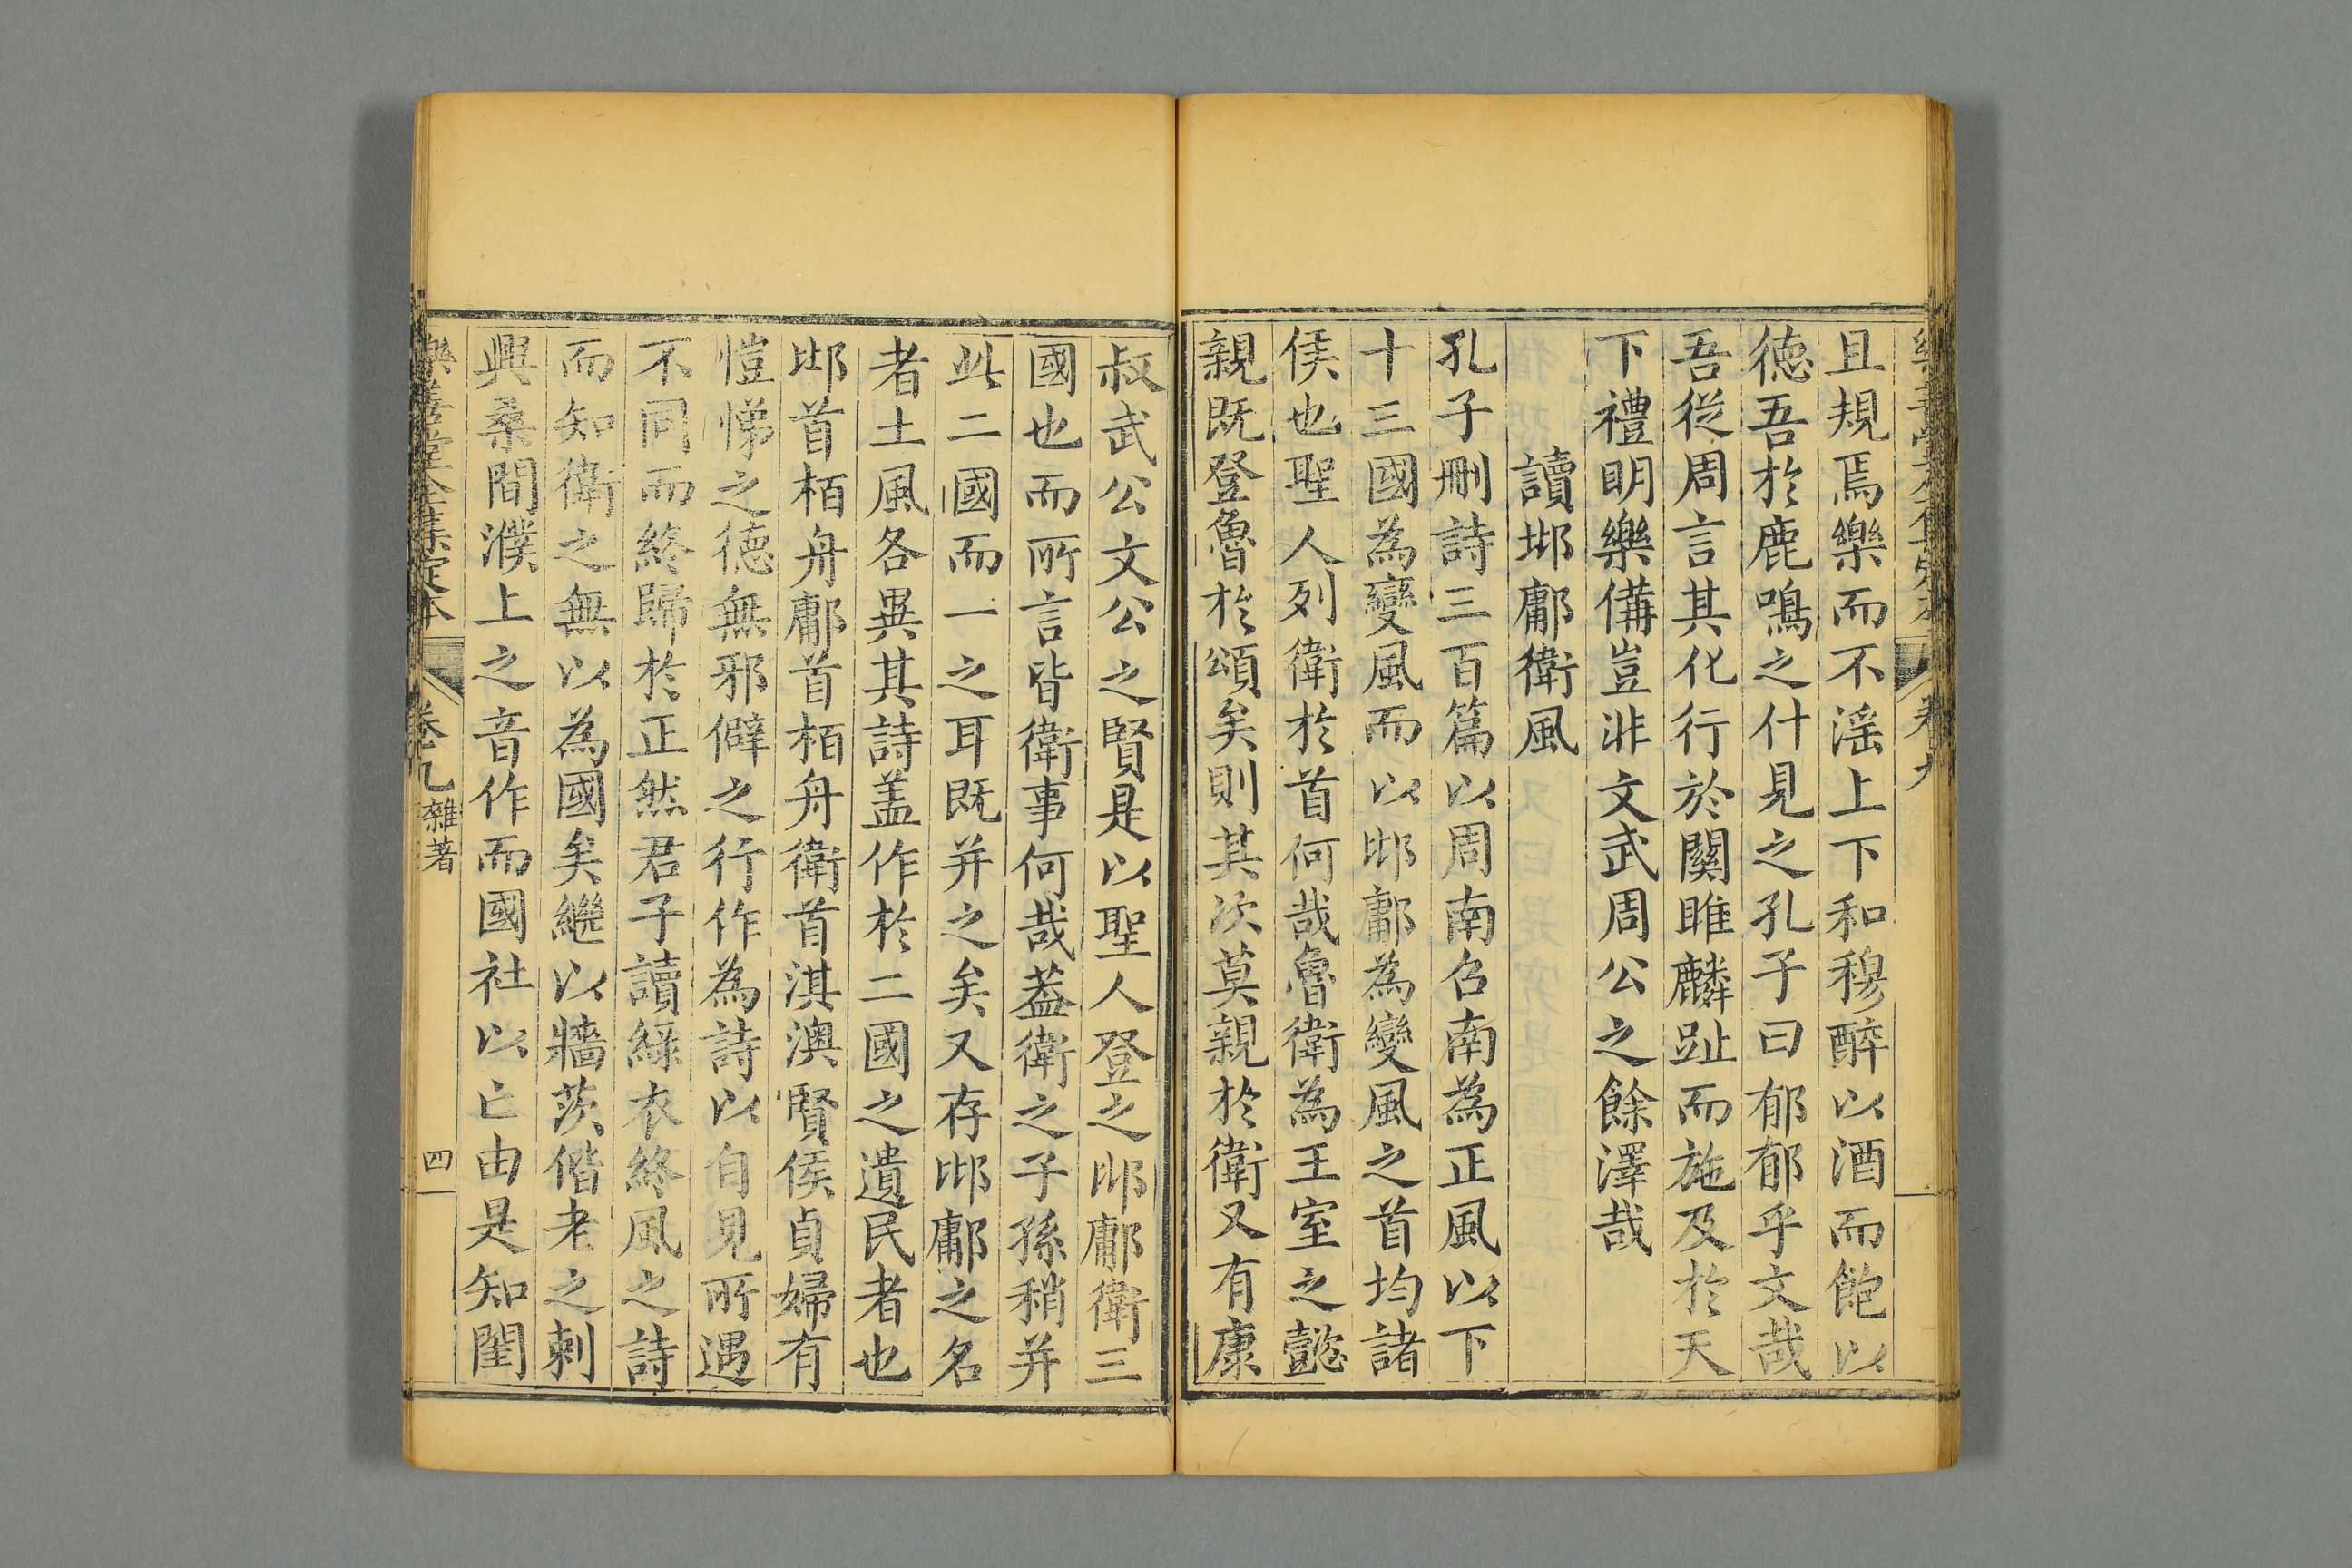 且規焉樂而不滛上下和穆醉以酒而飽以
徳吾於鹿鳴之什見之孔子曰郁郁乎文哉
吾從周言其化行於關雎麟趾而施及於天
下禮明樂備豈非文武周公之餘澤哉
讀邶鄘衛風
孔子刪詩三百篇以周南召南為正風以下
十三國為變風而以邶鄘為變風之首均諸
侯也聖人列衛於首何哉魯衛為王室之懿
親既登魯於頌矣則其次莫親於衛又有康
叔武公文公之賢是以聖人登之邶鄘衛三
國也而所言皆衛事何哉葢衛之子孫稍并
此二國而一之耳既并之矣又存邶鄘之名
者土風各異其詩盖作於二國之遺民者也
邶首栢舟鄘首栢舟衛首淇澳賢侯貞婦有
愷悌之德無邪僻之行作為詩以自見所遇
不同而終歸於正然君子讀綠衣終風之詩
而知衛之無以為國矣繼以牆茨偕老之刺
興桑間濮上之音作而國社以亡由是知閨
樂善堂全集定本 卷九 雜著 四